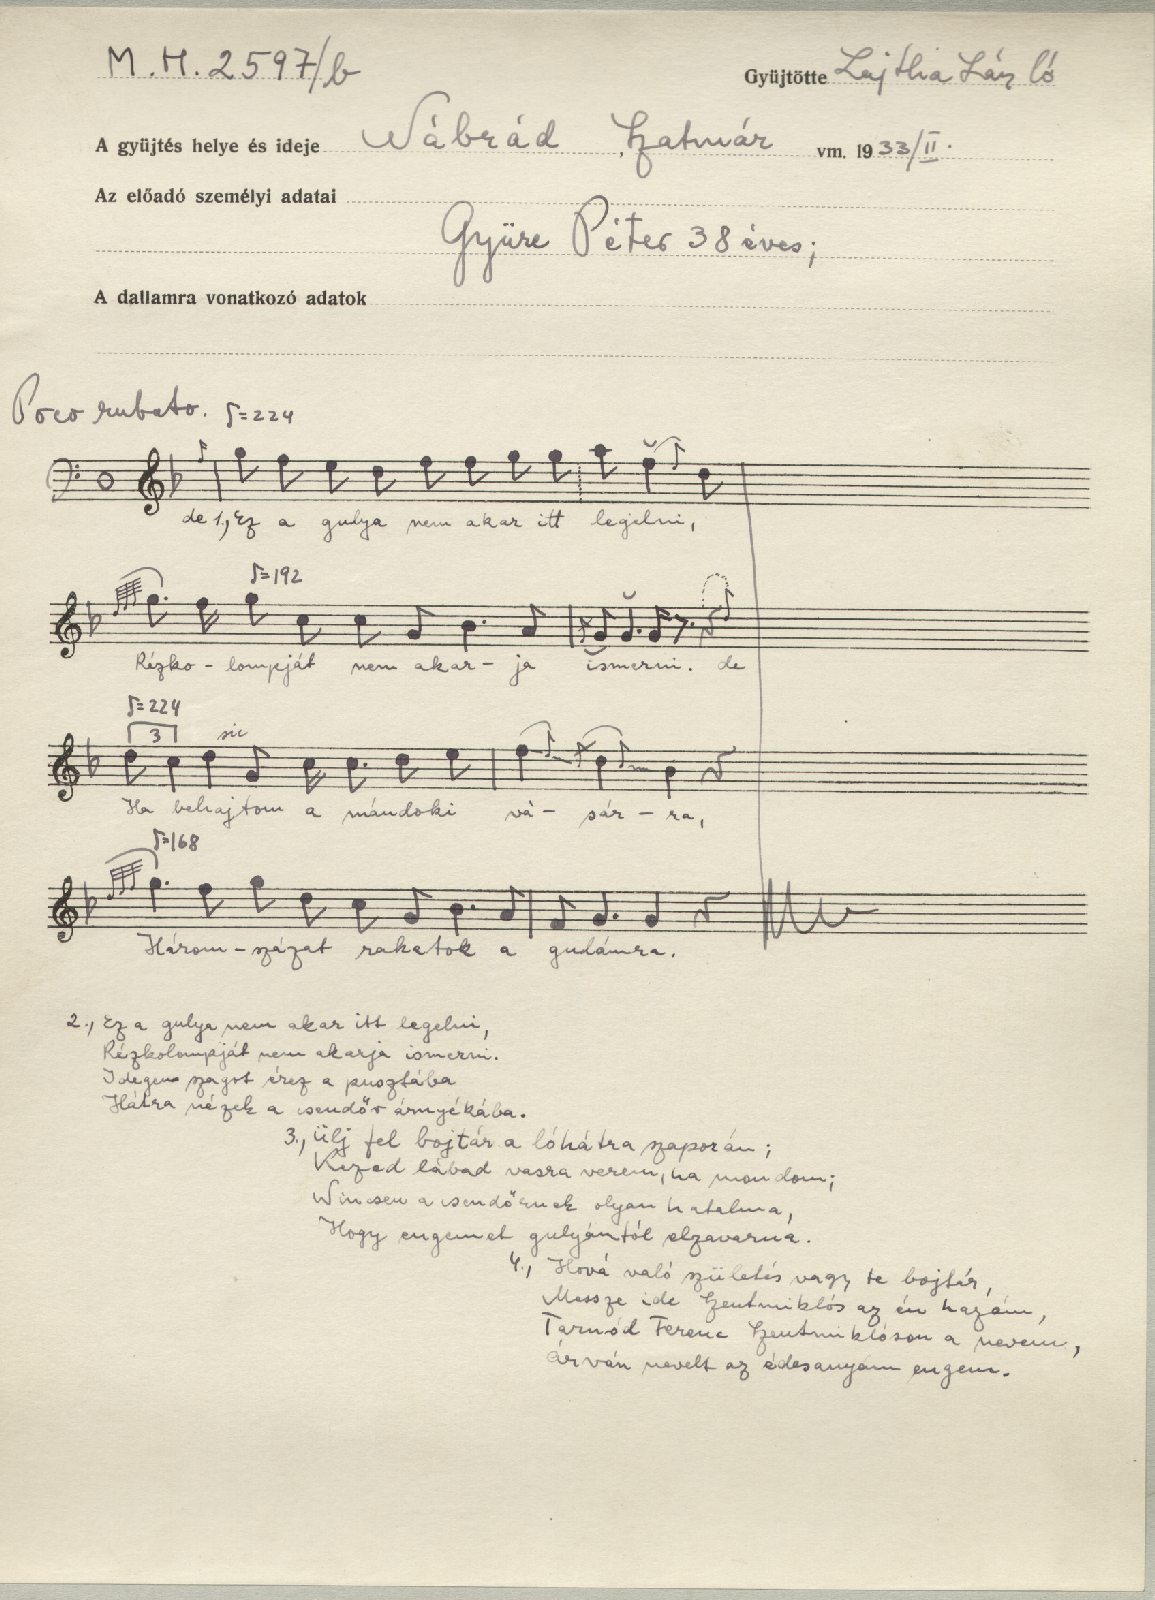 M.H. 2597/b
Gyüjtötte Lajtha László
A gyüjtés helye és ideje Nábrád, Szatmár vm. 1933/II.
Az előadó személyi adatai
Gyüre Péter 38 éves;
A dallamra vonatkozó adatok
Poco rubato. ♪=224
de 1., Ez a gulya nem akar itt legelni,
♪=192
Rézko-lompját nem akar-ja ismerni. de
♪=224
3 sic
Ha behajtom a mándoki vá-sár-ra,
♪=168
Három-százat rakatok a gudámra.
2., Ez a gulya nem akar itt legelni,
Rézkolompját nem akarja ismerni.
Idegen szagot érez a pusztába
Hátra nézek a csendőr árnyékába.
3., Ülj fel bojtár a lóhátra szaporán;
Kezed lábad vasra verem, ha mondom;
Nincsen a csendőrnek olyan hatalma,
Hogy engemet gulyámtól elzavarna.
4., Hová való születés vagy te bojtár,
Messze ide Szentmiklós az én hazám,
Tarnód Ferenc Szentmiklóson a nevem,
árván nevelt az édesanyám engem.